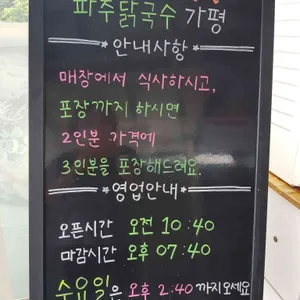 파주닭국수 가평
안내사항
매장에서 식사하시고,
포장까지 하시면
2인분 가격에
3인분을 포장해드려요.
영업안내
오픈시간 오전 10:40
마감시간 오후 07:40
수요일은 오후 2:40 까지오세요